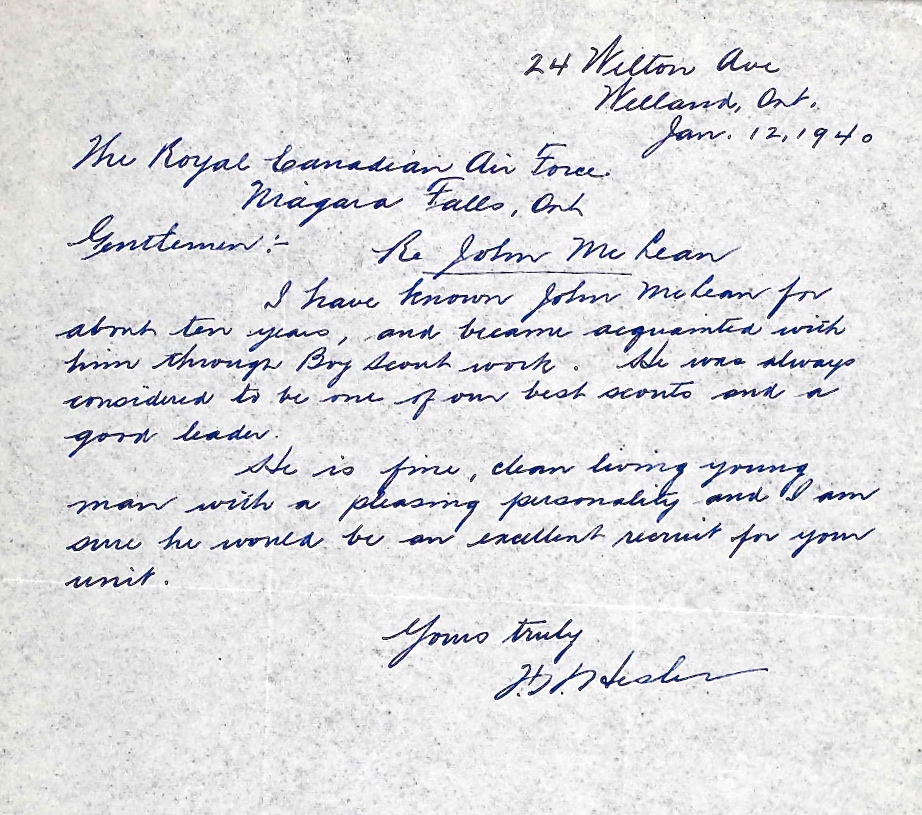 24 Wilton Ave
Welland, Ont.
Jan. 12, 1940
The Royal Canadian Air Force.
Niagara Falls, Ont
Gentlemen :-
Re John McLean
I have known John McLean for
about ten years, and became acquainted with
him through Boy Scout work. He was always
considered to be one of our best scouts and a
good leader.
He is fine, clean living young
man with a pleasing personality and I am
sure he would be an excellent recruit for your
unit.
Yours truly